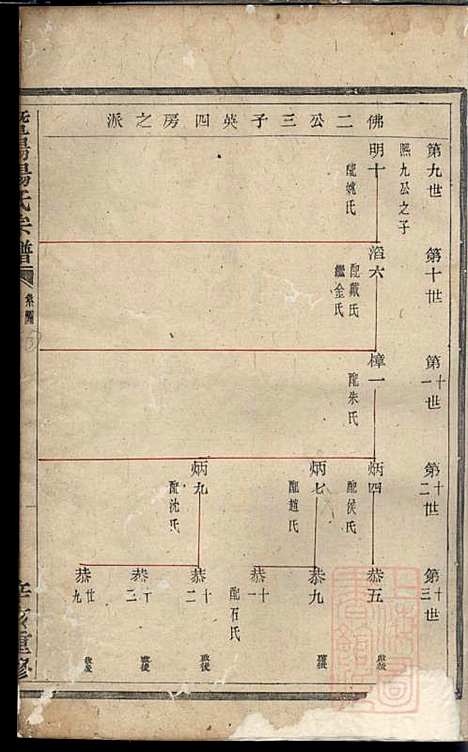 佛二公三子英四房之派
第九世
熙九公之子
明十
配姚氏
第十世
滔六
配戴氏
繼金氏
第十一世
樟一
配朱氏
第十二世
炳四
配侯氏
炳七
配趙氏
炳九
配沈氏
第十三世
恭五
恭九
恭十一
配石氏
恭十二
恭廿九
暨陽湯氏宗譜
辛亥重修